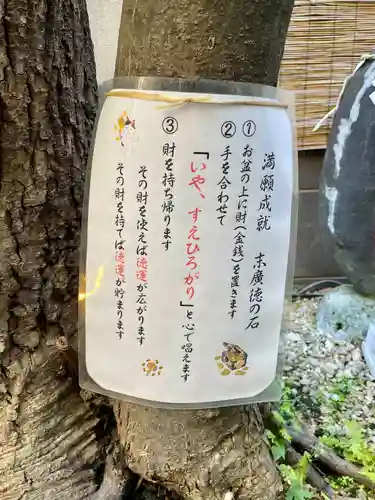 満願成就　末廣徳の石
①お盆の上に財(金銭)を置きます
②手を合わせて
「いや、すえひろがり」と心で唱えます
③財を持ち帰ります
その財を使えば徳運が広がります
その財を持てば徳運が貯まります